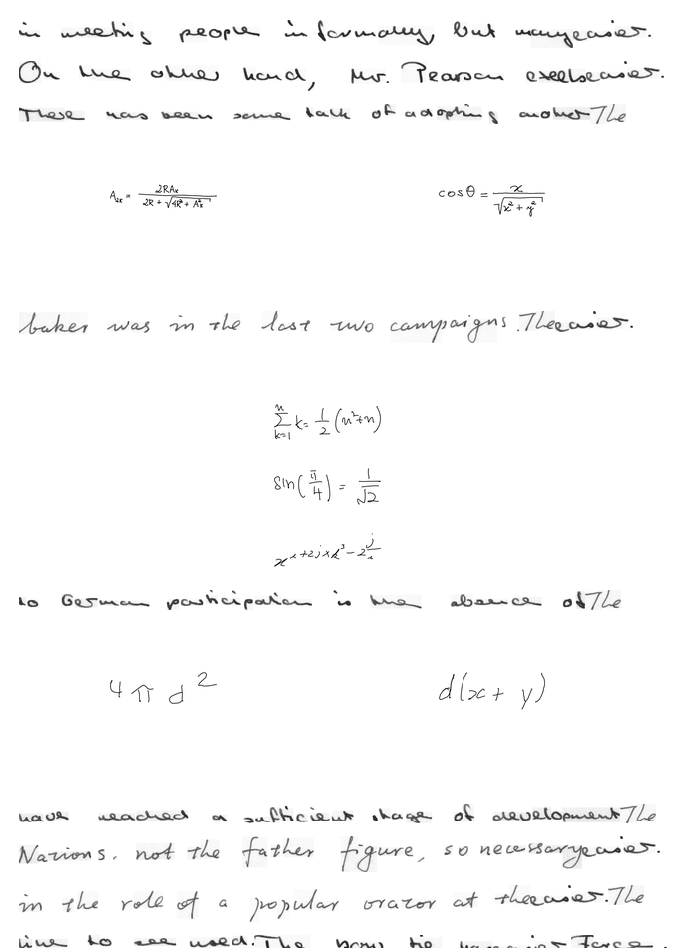 in meeting people informally, but many easier.
On the other hand, Mr. Pearson excels easier.
There has been some talk of adopting another The
A_{2x} = \frac{2RA_x}{2R + \sqrt{4R^2 + A_x^2}}
cos θ = \frac{x}{\sqrt{x^2 + y^2}}
baker was in the last two campaigns. The easier.
\sum_{k=1}^{n} k = \frac{1}{2}(n^2+n)
sin(\frac{π}{4}) = \frac{1}{\sqrt{2}}
to German participation is the absence of The
4 π d^2
d(x + y)
have reached a sufficient stage of development The
Nations. not the father figure, so necessary easier.
in the role of a popular orator at the easier. The
to see used. The Force